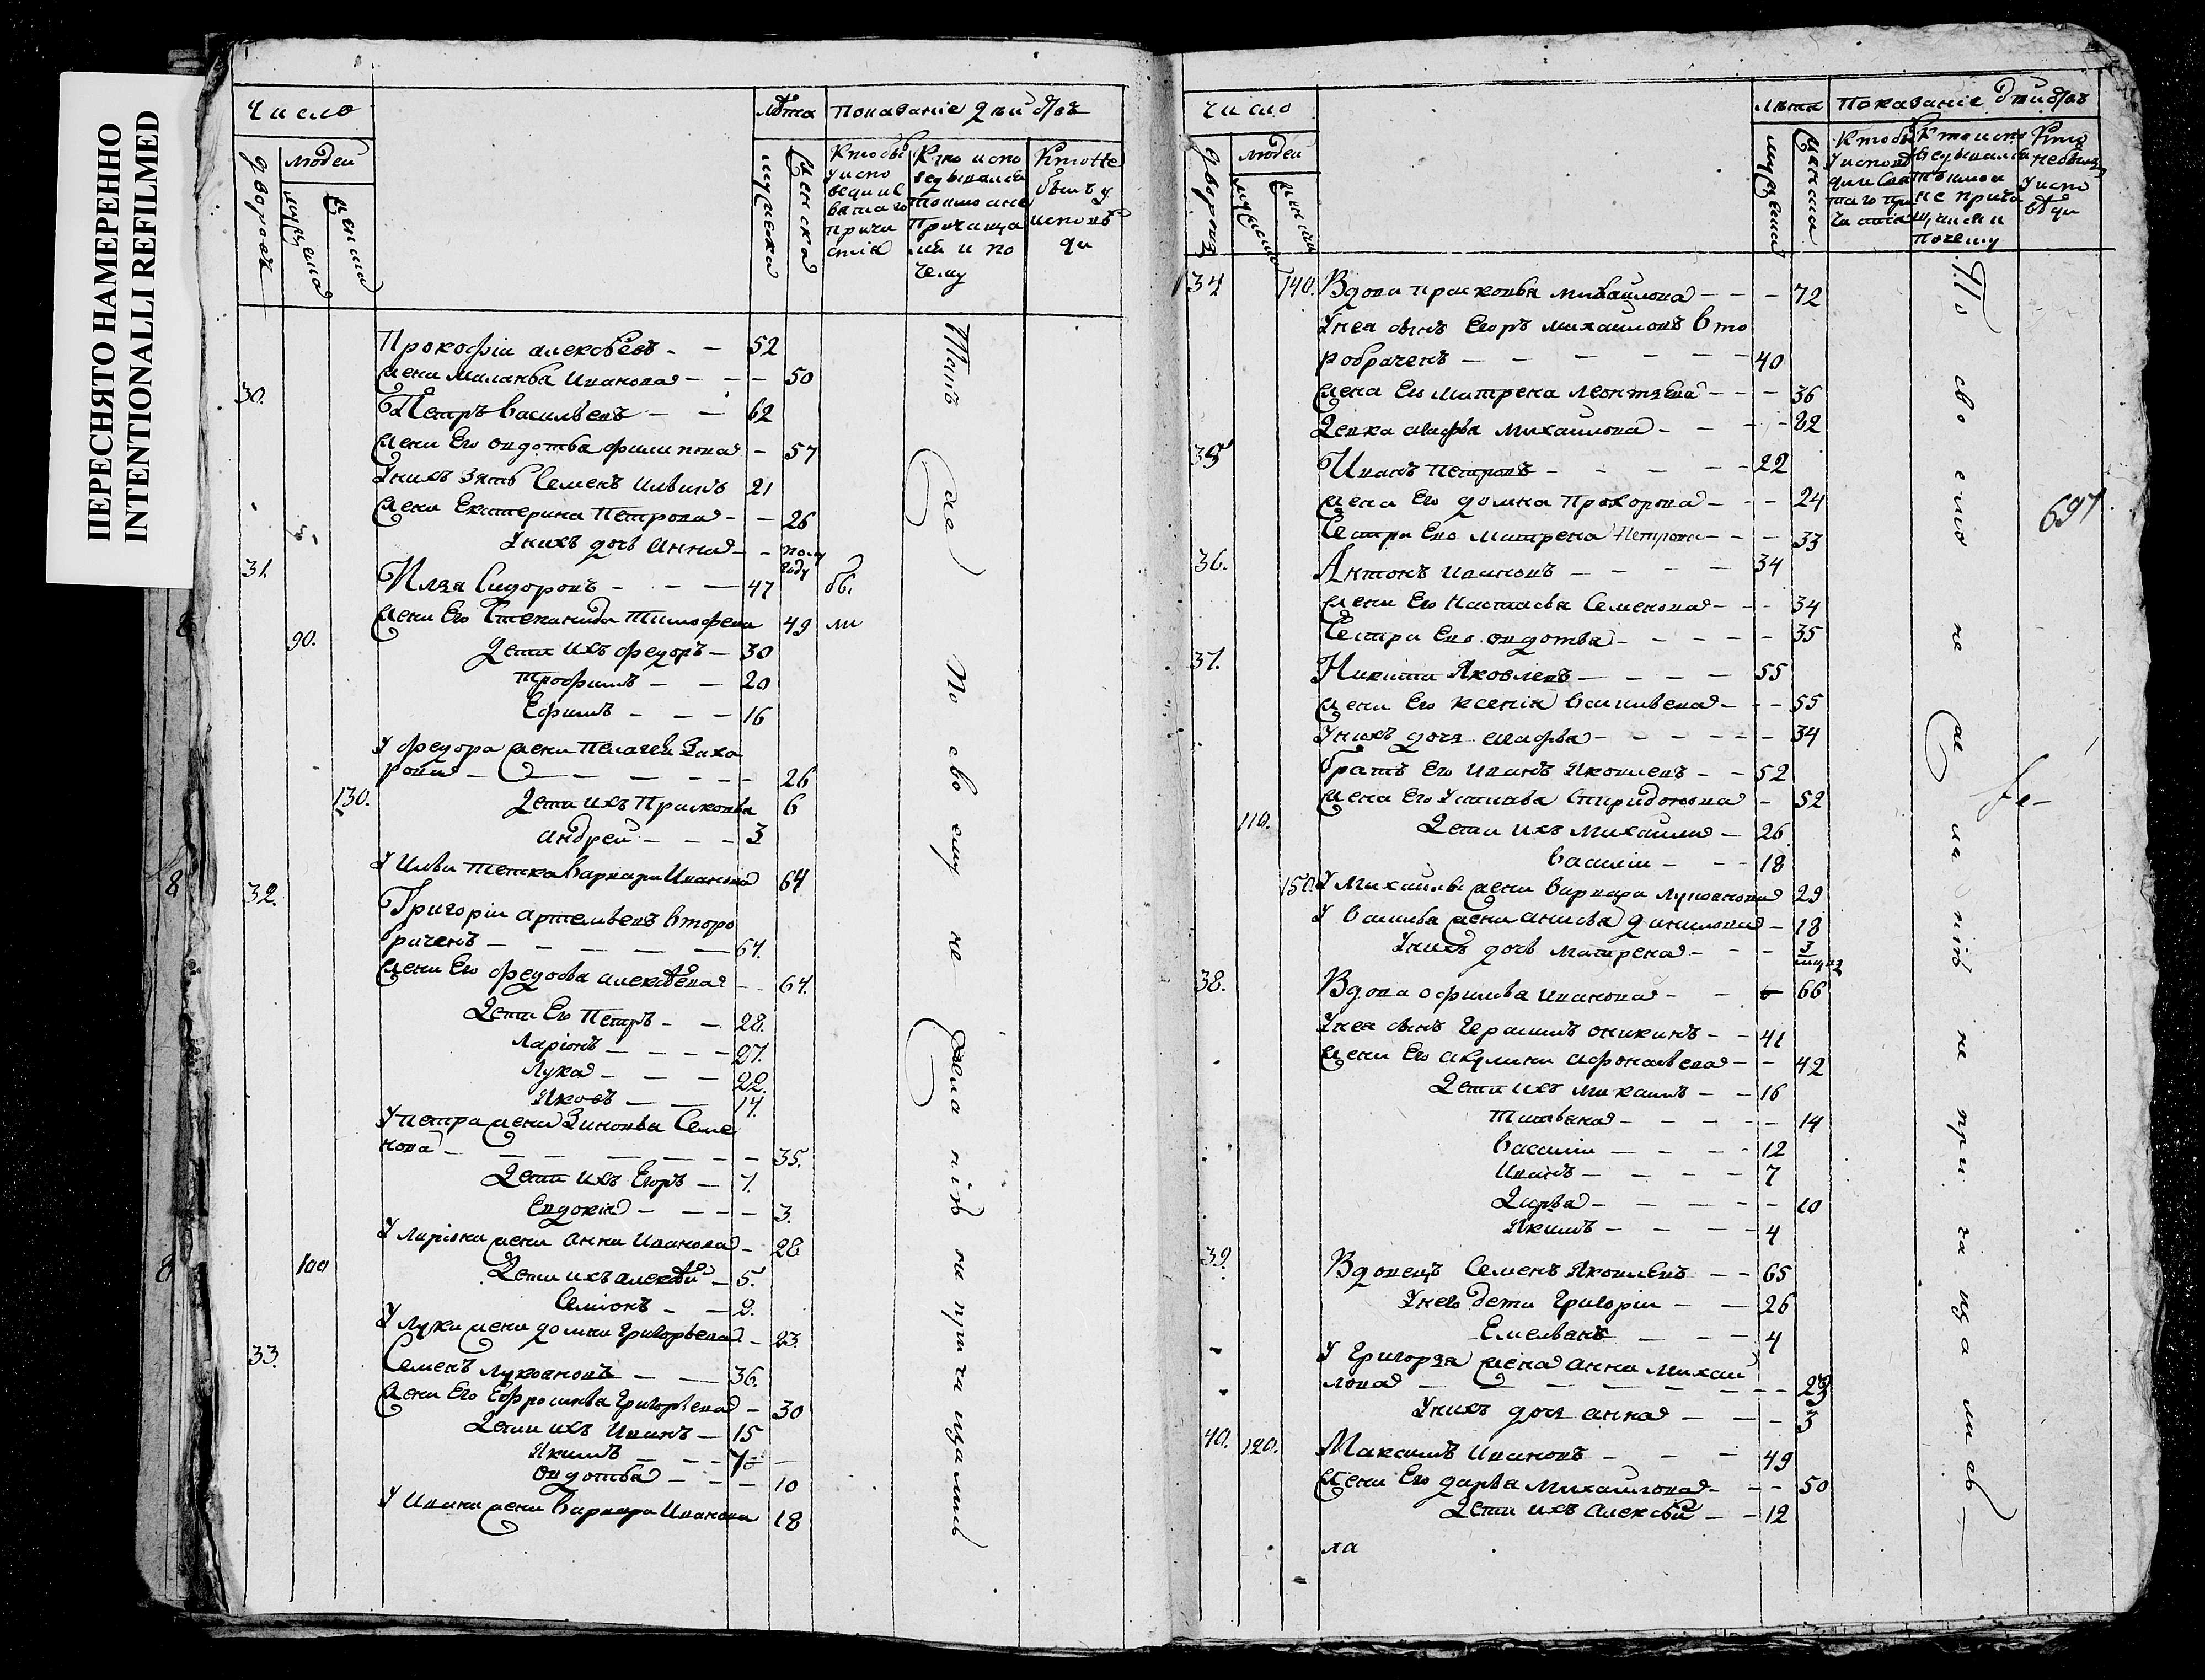 ПЕРЕСНЯТО НАМЕРЕННО
INTENTIONALLI REFILMED
Число
лѣта
показание
дворовъ
людей
мужеска
женска
мужеска
женска
Кто бы
у испо
веди и с
вятаго
прича
стія
Кто испо
ведывался
токмо а не
причаща
лся и по
чему
Кто не
былъ у
исповѣ
ди
Прокофіи алексѣевъ - - 52
жена Маланья Иванова - - - 50
30. Петръ васильевъ - - 62
жена Его овдотья филипова - 57
Унихъ зять Семенъ 21
жена Екатерина Петрова - - 26
Унихъ дочь Анна - - полу
году
31. Илья Сидоровъ - - - 47 бы
жена Его Степанида Тимофева 49 ли
90. Дети ихъ федоръ - 30
трофимъ - - 20
Ефимъ - - - 16
У федора жена Пелагея Заха
рова - - - - - - 26
130. Дети ихъ Прасковья 6
андрей - - - 3
У Ильи тетка Варвара Иванова 64
32. Григорій артемьевъ второ
браченъ - - - - - 64.
жена Его федосья алексѣева - - 64.
Дети Его Петръ - - 28.
Ларіонъ - - - - 27.
Лука - - - - 22.
Яковъ - - - 17.
У петра жена Зиновья Семе
нова - - - - - - - 35.
Дети ихъ Егоръ - 7.
Евдокія - - - - 3.
У Ларіона жена Анна Иванова - 28
100 Дети ихъ алексѣй - 5.
Семіонъ - - 2.
У Луки жена домна Григорьева - 23.
33. Семенъ Лукояновъ - - - 36.
жена Его Ефросинья Григорьева - 30
Дети ихъ Иванъ - 15
Якимъ - - - 7
овдотья - - - 10
У Ивана жена Варвара Иванова 18
Такъ
же
по своему не желанію не причащались
число
лѣта
Показаніе
дворовъ
людей
мужеска
женска
мужеска
женска
Кто бы
у испове
ди и свя
таго при
частія
Кто испо
ведывался
токмо а
не прича
щался и
почему
Кто
не былъ
у испо
вѣди
34 140. Вдова прасковья михайлова - - - 72
Унея сынъ Егоръ михаиловъ вто
робраченъ - - - - - - - 40
жена Его матрена леонтьева - - - 36
Девка агафья михаилова - - - - 22
35 Иванъ петровъ - - - - - 22
жена Его домна Прохорова - - - 24
Сестра Ево матрена петрова - - - 33
36. Антонъ ивановъ - - - - 34
жена Его настасья Семенова - - - 34
Сестра Ево овдотья - - - - - 35
37. Никита Яковлевъ - - - - 55
жена Его ксенія васильева - - - 55
Унихъ дочь агафья - - - - - - 34
братъ Его иванъ Яковлевъ - - 52
жена Его Устинья Спиридонова - 52
110. Дети ихъ михаила - 26
василіи - - - 18
150. У михаилы жена варвара лукоянова 29
У василья жена анисья данилова - 18
Унихъ дочь матрена - - - 3
38. Вдова офимья иванова - - 66
Унея сынъ Герасимъ оникинъ - - 41
жена Его акулина афонасьева - - 42
Дети ихъ - - 16
татьяна - - - - - 14
василіи - - - - 12
иванъ - - - - 7
Дарья - - - - - 10
Якимъ - - - - 4
39. Вдовецъ Семенъ Яковлевъ - - 65
Унево дети Григоріи - - 26
Емельянъ - - - 4
У Григорья жена анна михаи
лова - - - - - - - - 23
Унихъ дочь анна - - - 3
40. 120. Максимъ ивановъ - - - 49
жена Его дарья михаилова - - - 50
Дети ихъ алексѣй - - 12
ла
По своемо не желанію не причащались
697